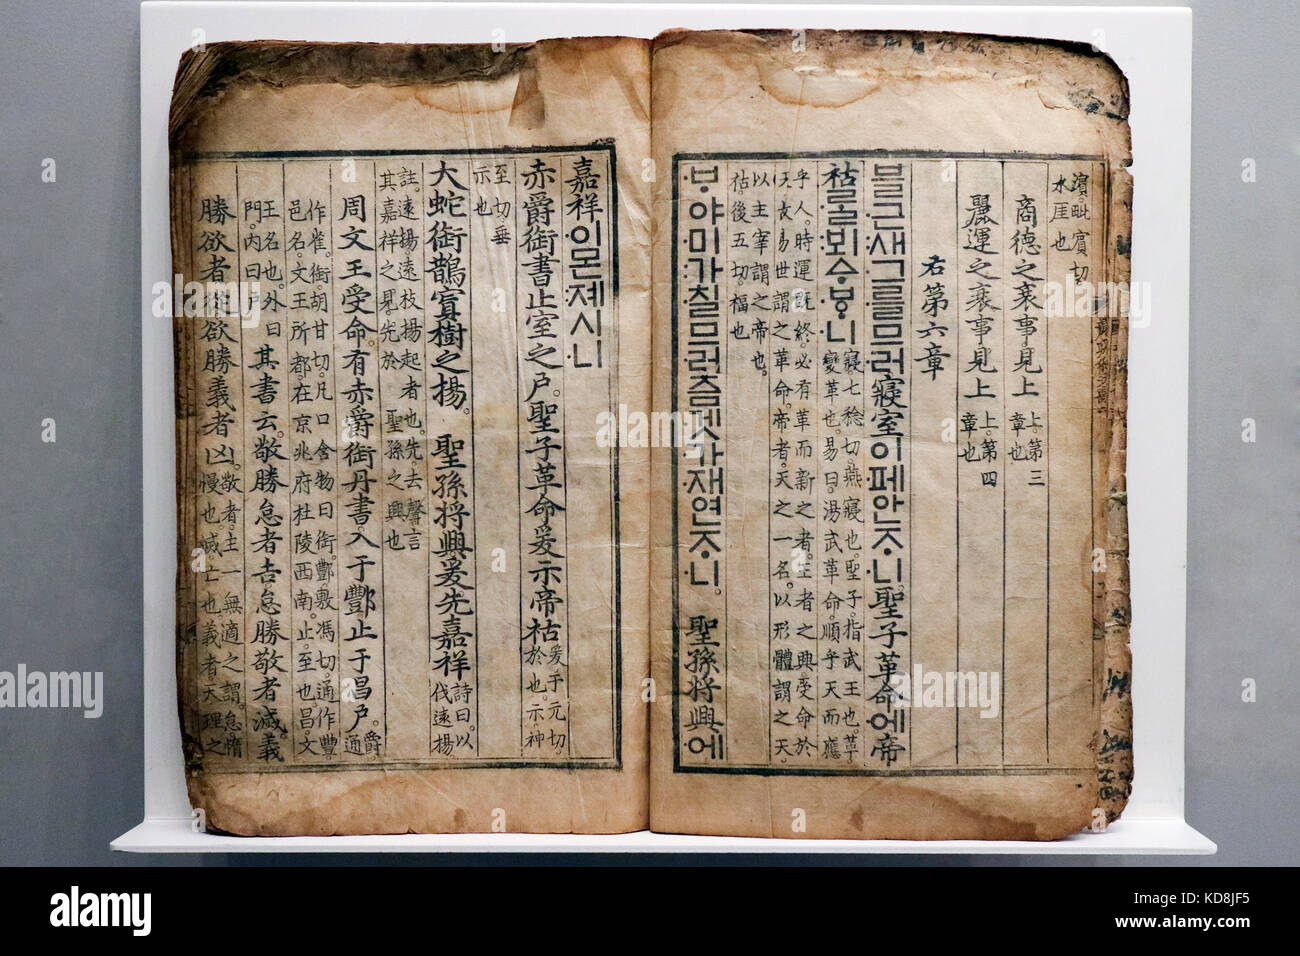 濱。毗賓切。
水厓也
商德之衰事見上
上。第三
章也
麗運之衰事見上
上。第四
章也
右第六章
블근새그를므러寢室이페안ᄌᆞ니。聖子革命에帝
祜ᄅᆞᆯ뵈ᅀᆞᄫᆞ니
寢七稔切。燕寢也。聖子。指武王也。革
變革也。易曰。湯武革命。順乎天而應
乎人。時運旣終。必有革而新之者。王者之興受命於
天。故易世謂之革命。帝者。天之一名。以形體謂之天
以主宰謂之帝也。
祜。後五切。福也
ᄇᆞ야미가칠므러즘겟가재연ᄌᆞ니。聖孫將興에
嘉祥이몬졔시니
赤爵銜書止室之戶。聖子革命爰示帝祜
爰。于元切。
於也。示。神
至切。垂
示也
大蛇銜鵲寘樹之揚。聖孫將興爰先嘉祥
詩曰。以
伐遠揚。
註。遠揚遠枝揚起者也。先。去聲。言
其嘉祥之見先於 聖孫之興也
周文王受命。有赤爵銜丹書。入于酆止于昌戶。
爵
通
作雀。銜。胡甘切。凡口含物曰銜。酆。敷馮切。通作豐。
邑名。文王所都。在京兆府杜陵西南。止。至也。昌。文
王名也。外曰
門。內曰戶
其書云。敬勝怠者吉怠勝敬者滅。義
勝欲者從欲勝義者凶。
敬者。主一無適之謂。怠惰
慢也。滅亡也。義者天理之
alamy
Image ID: KD8JF5
www.alamy.com